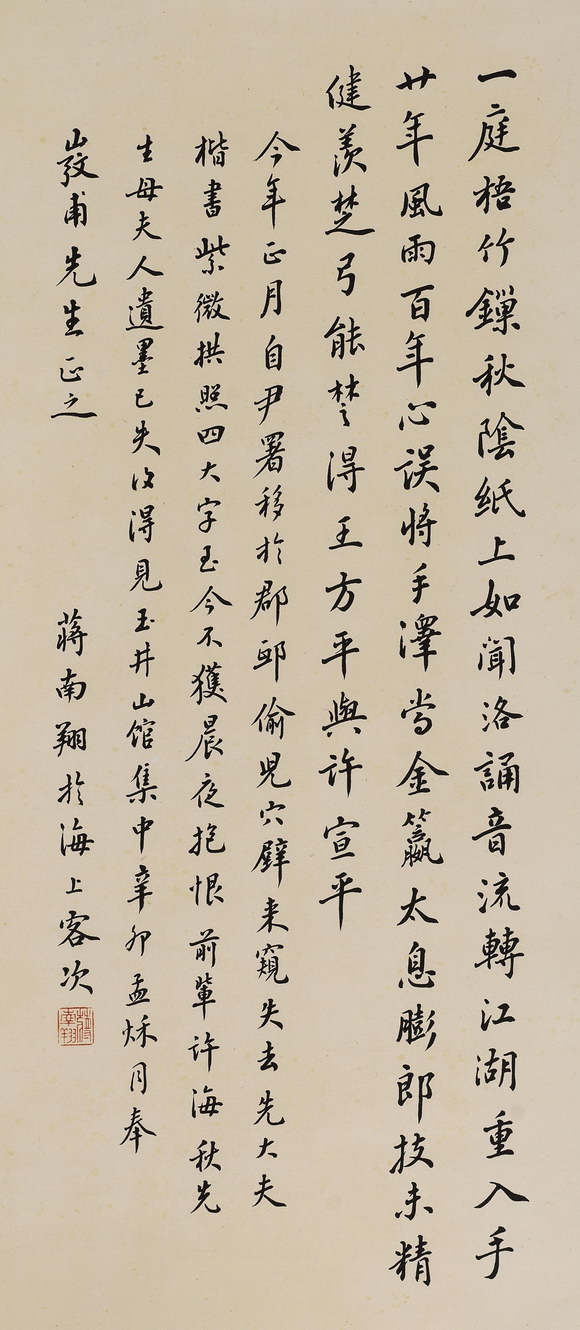 一庭梧竹鏁秋陰紙上如聞洛誦音流轉江湖重入手
廿年風雨百年心誤將手澤當金籯太息膨郎技未精
健羨楚弓能楚得王方平與許宣平
今年正月自尹署移於郡邸偷児穴壁来窺失去先大夫
楷書紫微拱照四大字至今不獲晨夜抱恨前輩許海秋先
生母夫人遺墨已失復得見玉井山館集中辛卯孟秌月奉
甫先生正之
蔣南翔於海上客次